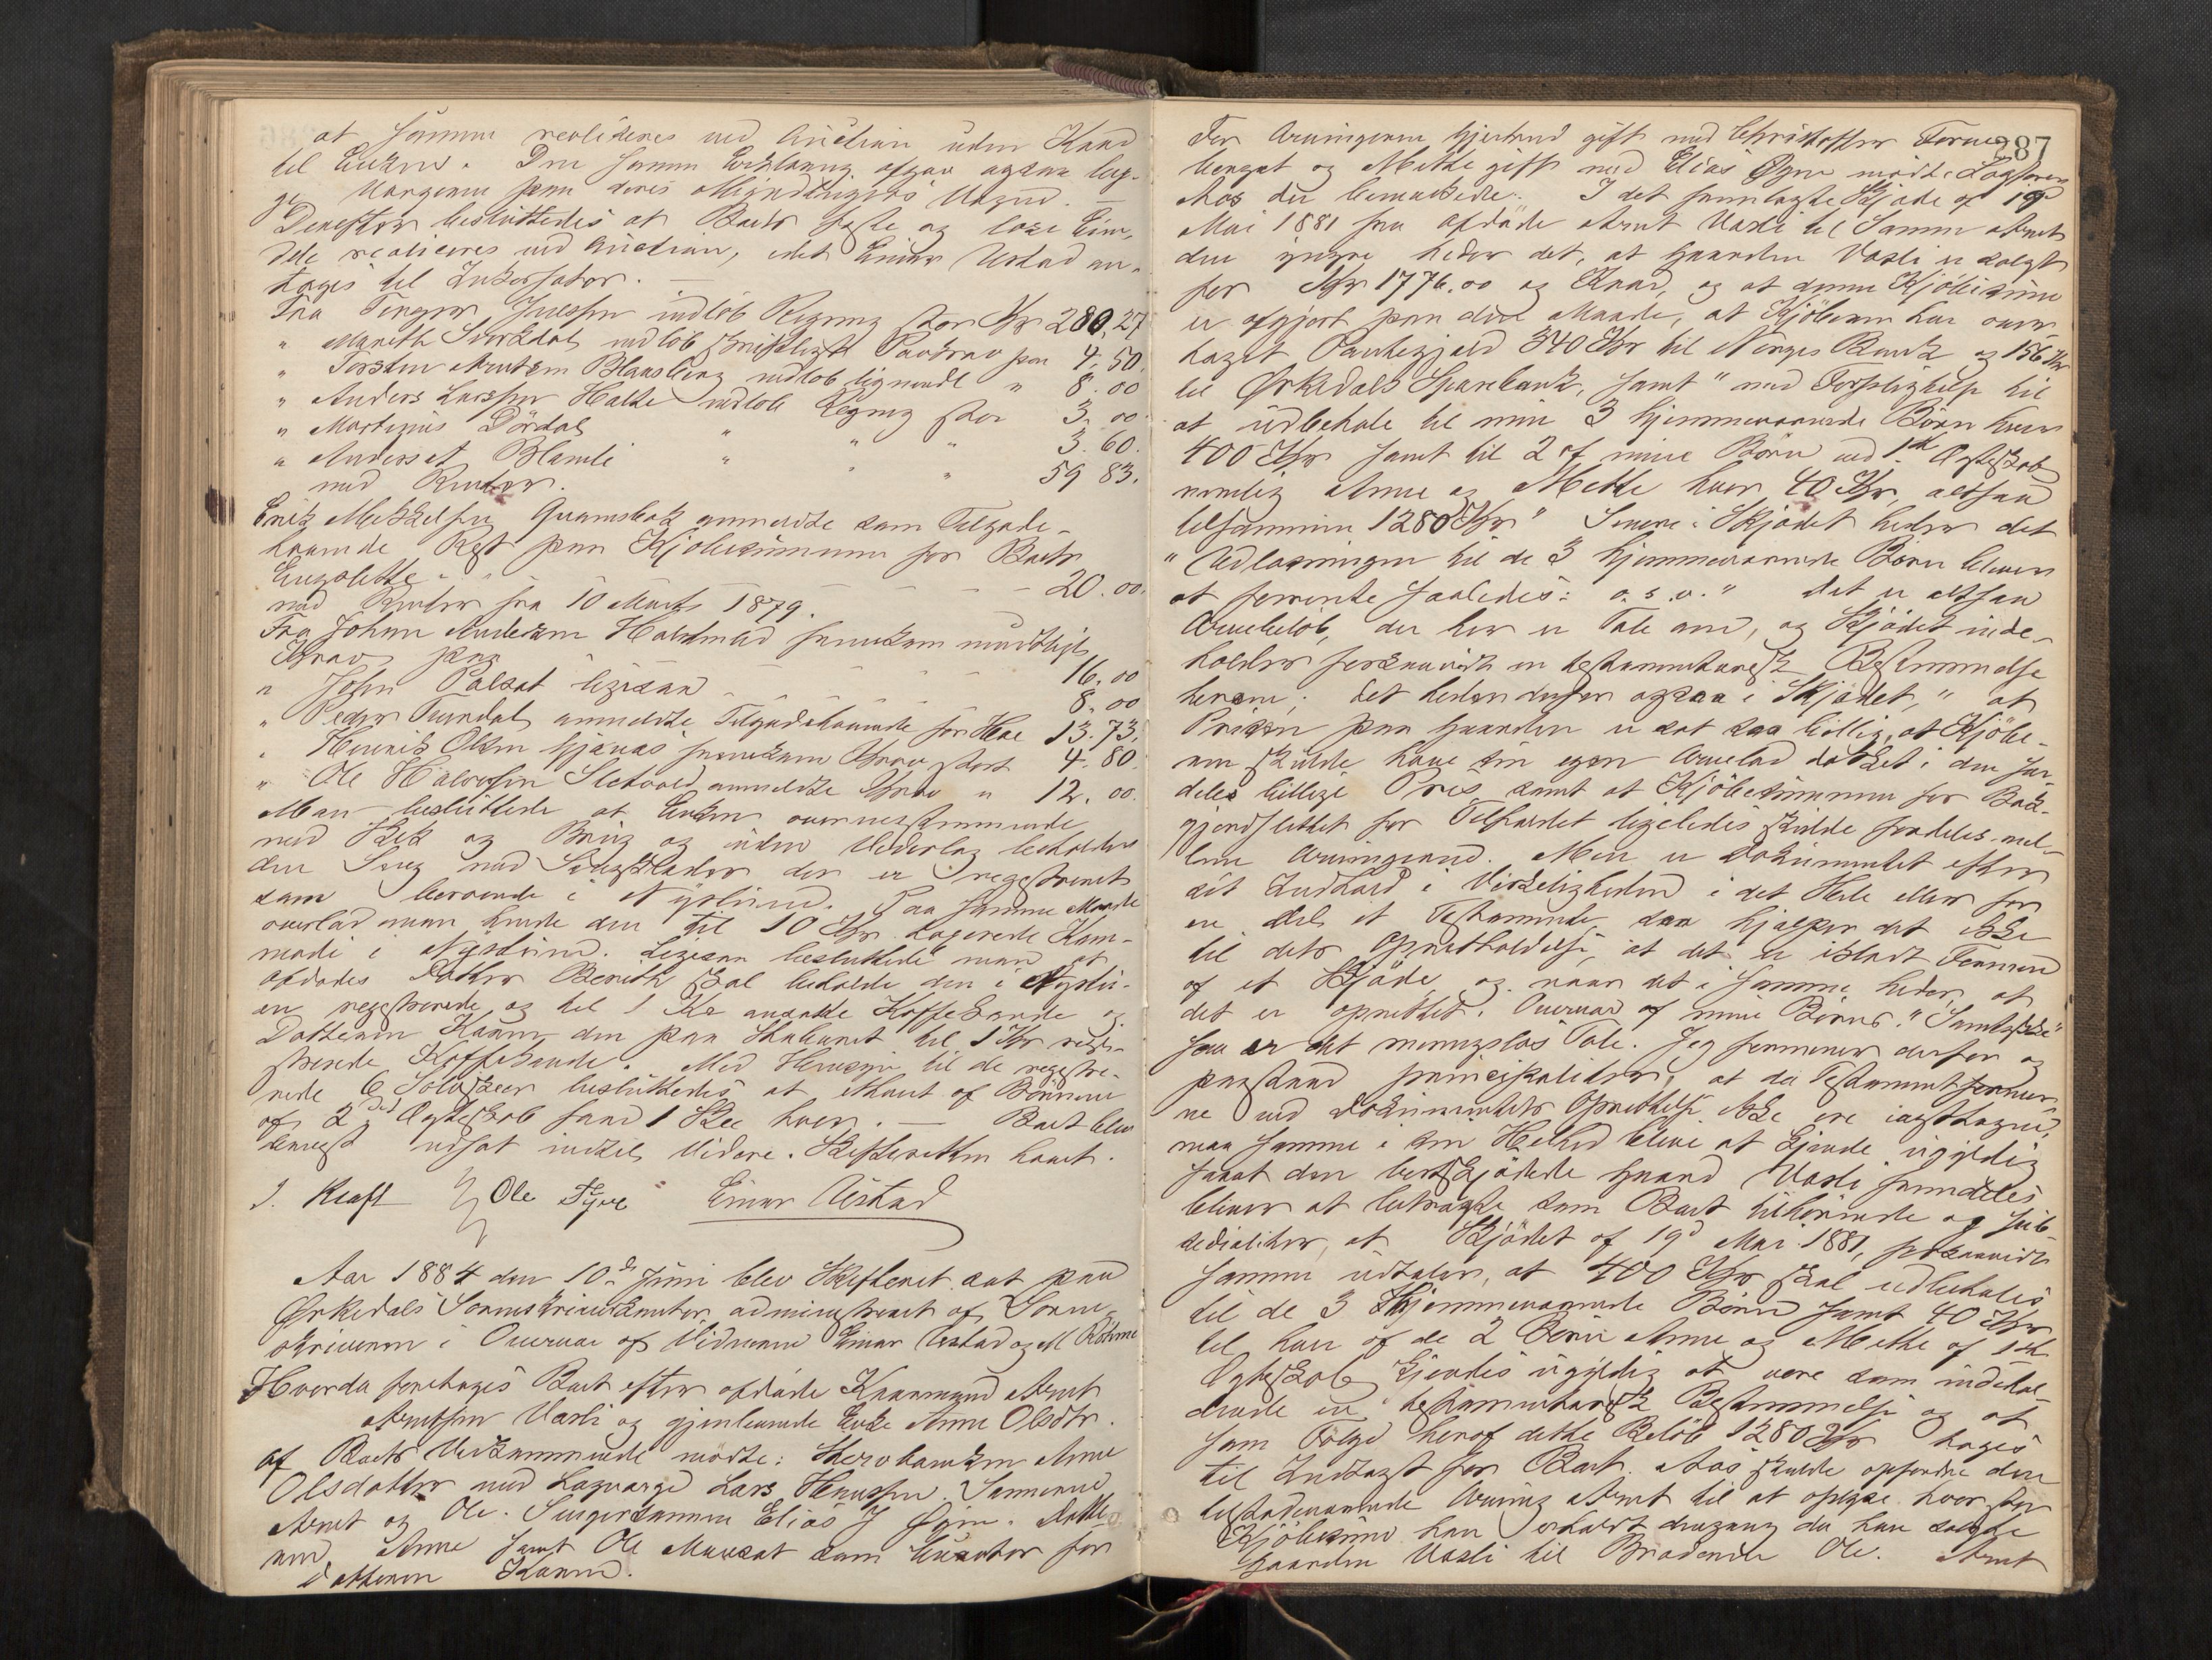 at samme realiseres ved Auction uden Kand
til Enken. Den samme Erklæring afgav ogsaa Laug-
Vergerne paa deres Myndtlinges Vegne. —
Derefter besluttedes at Boets faste og løse Eien-
dele realiseres ved Auction, idet Einar Ustad an-
toges til Inkassator. —
Fra Jenger Julssen indløb Regning stor Kr 280,27
" Mareth Svorkdal indløb skriftligt Paakrav paa 4,50
" Torsten Arntsen Blaasberg indløb lignende " 8.00
" Anders Larssen Holte indløb Regning stor 3,00
" Martinus Dördal " " " 3.60.
" Anders Blamli " " " 59 83.
med Renter.
Erik Mekkelsen Gramsbak anmeldte som Tilgode-
havende Rest paa Kjøbesummen for Boets
Engeslette - - - - 20.00.
med Renter fra 10 Marts 1879.
Fra Johan Andersen Holstad fremkom mundtligt
Krav paa - - - 16,00
" John Solsat ligesaa - - - 8,00
" Peder Tundal anmeldte Tilgodehavende for Hoe 13.73,
" Henrik Olsen Gjønnes fremkom Krav stort 4.80.
" Ole Halvorsen Sletvold anmeldte Krav " 12.00.
Man besluttede at Enken overensstemmende
med Skik og Brug og uden Vederlag beholder
den Seng med Sengklæder der er registreret
som beroende i Nystuen. Paa samme Maade
overlod man hende den til 10 Kr. taxerede Kom-
mode i Nystuen. Ligesaa besluttede man at
afdødes Datter Bereth skal beholde den i Nystu-
en registrerede og til 1 Kr ansatte Kaffekande og
Datteren Karen den paa Stabburet til 1 Kr regi-
strerede Kaffekande. Med Hensyn til de registre-
rede 6 Sølvskeer besluttedes at ethvert af Børnene
af 2det Ægteskab faar 1 Skee hver. — Boet blev
dernæst udsat indtil Videre. Skifteretten hævet.
J. Kraft Ole Fyve Einar Ustad
Aar 1884 den 10de Juni blev Skifteret sat paa
Ørkedals Sorenskriverkontor administreret af Soren-
skriveren i Overvær af Vidnerne Einar Ustad og M Röhme
Hvorda foretoges Boet efter afdøde Kaarmand Arnt
Arntssen Vasli og gjenlevende Enke Anne Olsdtr.
af Boets Vedkommende mødte: Stervboenken Anne
Olsdatter med Laugværge Lars Henrissen. Sønnerne
Arnt og Ole. Svigersønnen Elias J Øyen. Datte-
ren Anne samt Ole Mærsat som Curator for
Datteren Karen.
287
For Arvingerne Gjertrud gift med Christoffer Forne-
vengat og Mette gift med Elias Øyen mødte Sagfører
Aas der bemærkede: I det fremlagte Skjøde af 19d
Mai 1881 fra afdøde Arnt Vasli til Sønnen Arnt
den yngre heder det, at Gaarden Vasli er solgt
for Kr 1776.00 og Kaar, og at denne Kjøbesum
er afgjort paa den Maade, at Kjøberen har over-
taget Pantegjeld 340 Kr til Norges Bank og 156 Kr
til Ørkedals Sparebank, samt "med Forpligtelse til
at udbetale til mine 3 hjemmeværende Børn hver
400 Kr samt til 2 af mine Børn ved 1ste Ægteskab
nemlig Anne og Mette hver 40 Kr, altsaa
tilsammen 1280 Kr" Senere i Skjødet heder det
"Udlosningen til de 3 hjemmeværende Børn bliver
at forrente saaledes: o. s. v." det er altsaa
Arvebeløb, der her er Tale om, og Skjødet inde-
holder forsaavidt en testamentarisk Bestemmelse
herom; det heder derfor ogsaa i Skjødet, "at
Prisen paa Gaarden er sat saa billig, at Kjøbe-
ren skulde have sin egen Arvelod dækket i den saa-
ledes billige Pris samt at Kjøbesummen for Bøk-
gjerdslettet for Tilfældet ligeledes skulde fordeles mel-
lem Arvingerne. Men er Dokumentet efter
sit Indhold i Virkeligheden i det Hele eller for
en Del et Testamente, saa hjælper det ikke
til dets Opretholdelse, at det er iklædt Formen
af et Skjøde og naar det i samme heder, at
det er oprettet i Overvær af mine Børns "Samtykke"
saa er det meningsløs Tale. Jeg formener derfor og
paastaar principaliter, at da Testamentsformer-
ne ved Dokumentets Oprettelse ikke ere iagttagne,
maa samme i sin Helhed blive at kjende ugyldig
samt den bortskjødede Gaard Vasli fremdeles
bliver at betragte som Boet tilhørende og sub-
sidialiter, at Skjødet af 19d Mai 1881, forsaavidt
samme udtaler, at 400 Kr skal udbetales
til de 3 Hjemmeværende Børn samt 40 Kr
til hver af de 2 Børn Anne og Mette af 1ste
Ægteskab kjendes ugyldig at være som indehol-
dende en testamentarisk Bestemmelse og at
som Følge heraf dette Beløb 1280 Kr tages
til Indtægt for Boet. Aas skulde opfordre den
tilstedeværende Arving Arnt til at oplyse hvor stor
Kjøbesum han erholdt dengang da han solgte
Gaarden Vasli til Broderen Ole. Arnt